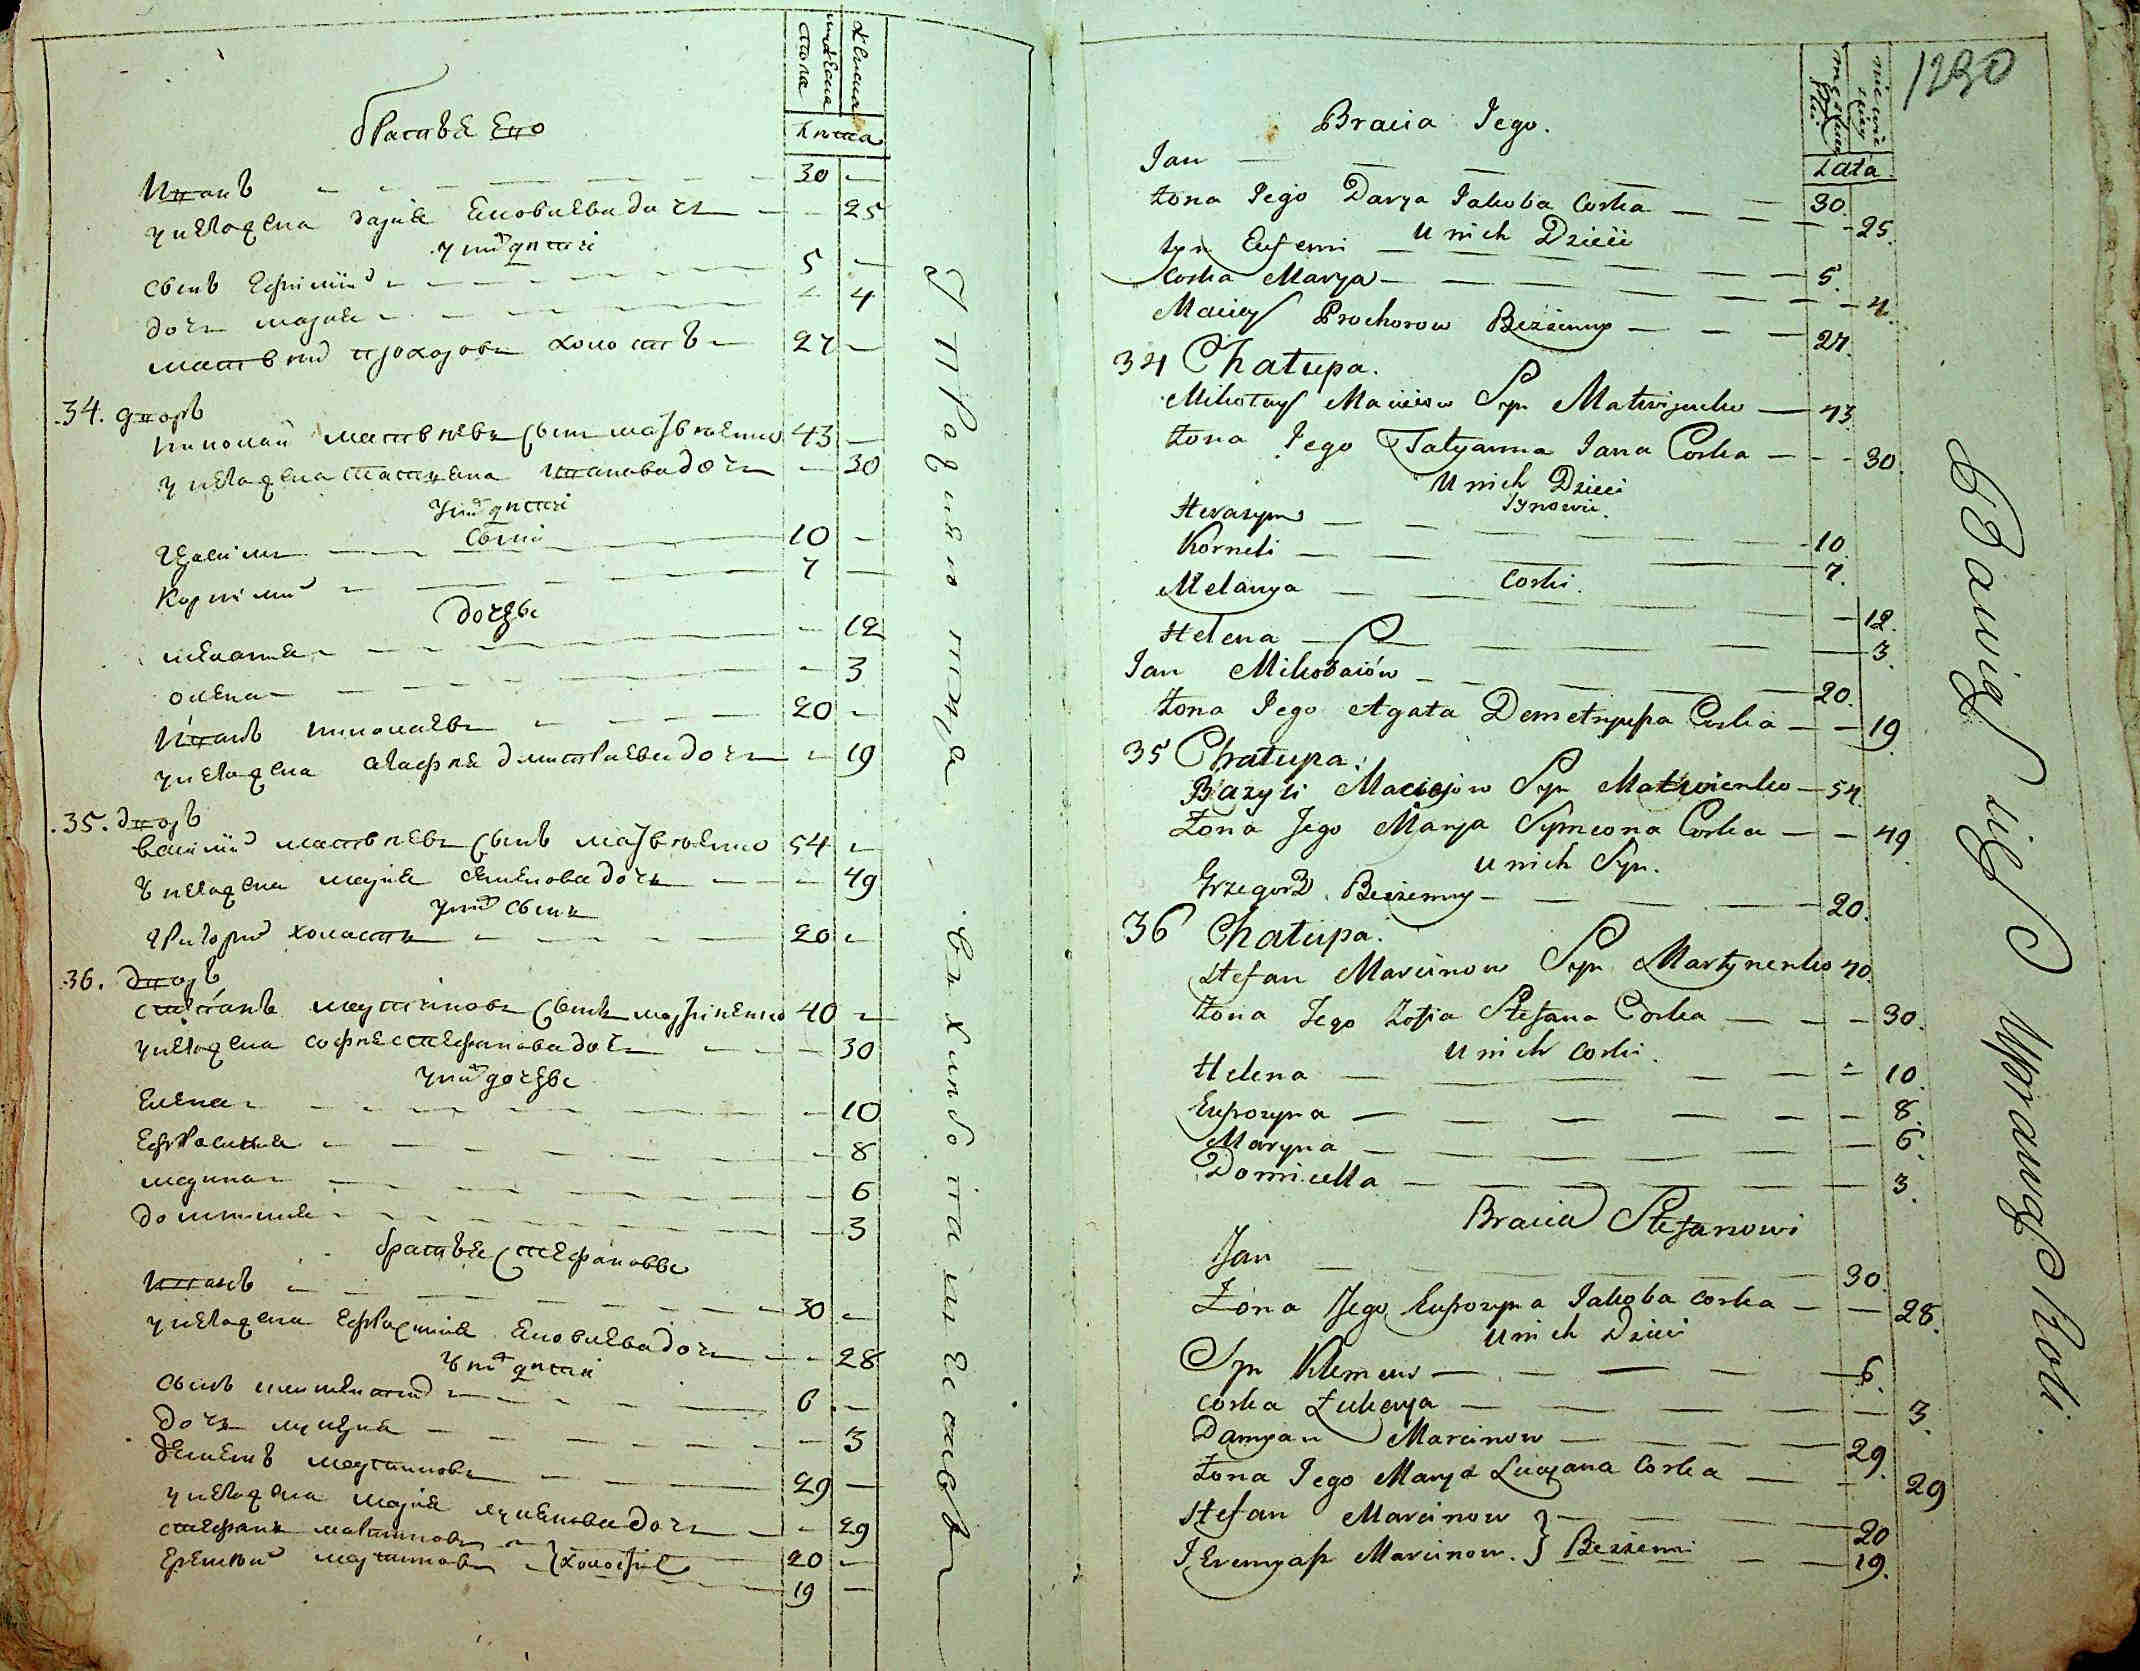 мужеска пола
женска
Лѣта
братья Его
Иванъ 30
у него жена дарія Ековлева дочь 25
у них дѣти
сынъ Ефимій 5
дочь марія 4
матвѣй прохоровъ холостъ 27
34. дворъ
николай матвѣевъ сынъ матвѣенко 43
у него жена татьяна Иванова дочь 30
у них дѣти
сыны
Герасимъ 10
Корнилий 7
дочери
меланія 12
олена 3
Иванъ николаевъ 20
у него жена агафія дмитриева дочь 19
35. дворъ
василій матвѣевъ сынъ матвѣенко 54
у него жена марія семенова дочь 49
у них сынъ
григорий холостъ 20
36. дворъ
стефанъ мартиновъ сынъ мартиненко 40
у него жена софія стефанова дочь 30
у них дочери
Елена 10
Ефросинія 8
марина 6
домникия 3
братья стефановы
Иванъ 30
у него жена Ефросинія Ековлева дочь 28
у них дѣти
сынъ климентий 6
дочь лукерия 3
демянъ мартиновъ 29
у него жена марія лукянова дочь 29
стефанъ мартиновъ 20
Еремѣй мартиновъ холостые 19
1290
męzkiey Płci
niewieściey
Lata
Bracia Jego.
Jan 30.
Żona Jego Darya Jakoba Corka 25.
U nich Dzieci
Syn Eufemi 5.
Corka Marya 4.
Maciey Prochorow Bezżenny 27.
34 Chałupa.
Mikołay Maciiow Syn Matwijenko 43.
Żona Jego Tatyanna Jana Corka 30.
U nich Dzieci
Synowie.
Herasym 10.
Korneli 7.
Corki.
Melanya 12.
Helena 3.
Jan Mikołaiów 20.
Żona Jego Agata Demetryusza Corka 19.
35 Chałupa.
Bazyli Maciejow Syn Matwienko 54.
Żona Jego Marya Symeona Corka 49.
U nich Syn.
Grzegorz Bezżenny 20.
36 Chałupa.
Stefan Marcinow Syn Martynenko 40.
Żona Jego Zofia Stefana Corka 30.
U nich Corki.
Helena 10.
Eufrozyna 8.
Maryna 6.
Domicella 3.
Bracia Stefanowi
Jan 30.
Żona Jego Eufrozyna Jakoba corka 28.
U nich Dzieci
Syn Klemens 6.
corka Łukerya 3.
Damyan Marcinow 29.
Żona Jego Marya Lucyana Corka 29
Stefan Marcinow 20
Jeremyasz Marcinow. Bezżenni 19.